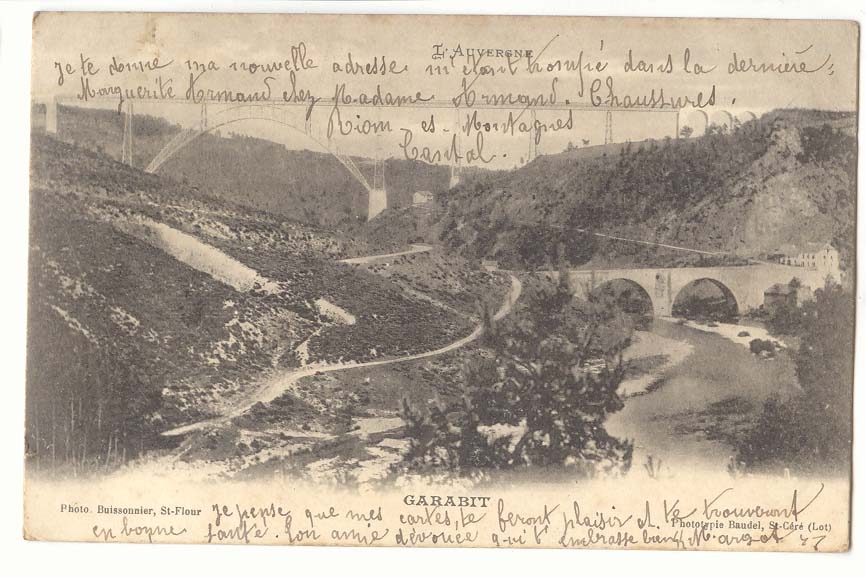 L'AUVERGNE
Je te donne ma nouvelle adresse. m'étant trompé dans la dernière;
Marguerite Armand chez Madame Armand. Chaussures.
Riom-es-Montagnes
Cantal.
GARABIT
Photo. Buissonnier, St-Flour
Phototypie Baudel, St-Céré (Lot)
Je pense que mes cartes te feront plaisir et te trouveront
en bonne santé. Ton amie dévouée qui t'embrasse bien Margot